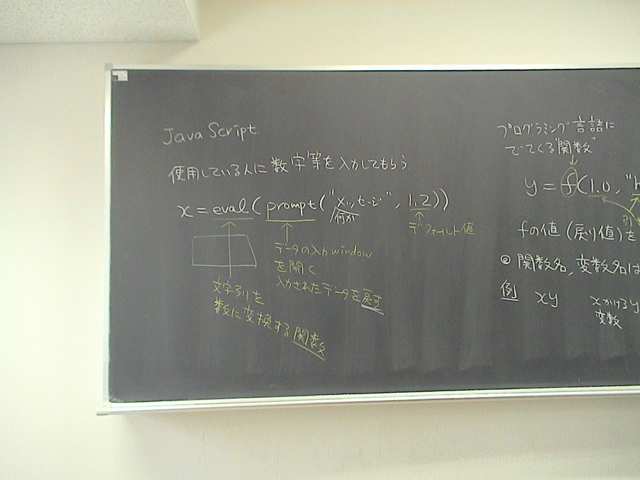 JavaScript
使用している人に数字等を入力してもらう
x = eval(prompt("メッセージ", 1.2))
何か
デフォルト値
データの入力window
を開く
入力されたデータを戻す
文字列を
数に変換する関数
プログラミング言語に
でてくる"関数"
y = f(1.0, "h
引
fの値(戻り値)を
◎関数名,変数名は
例 xy xかけるy
変数